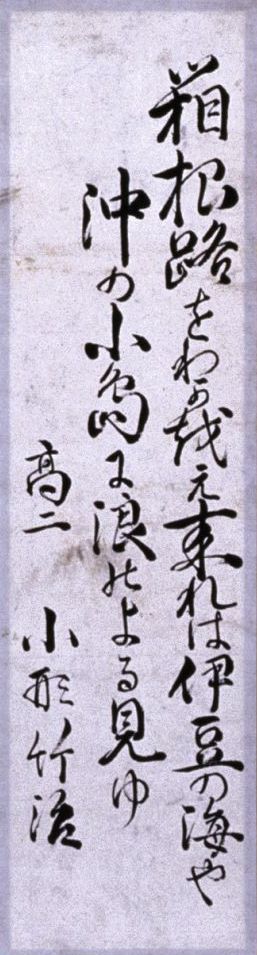 箱根路をわか越え来れは伊豆の海や
沖の小島に浪のよる見ゆ
高二 小形竹治